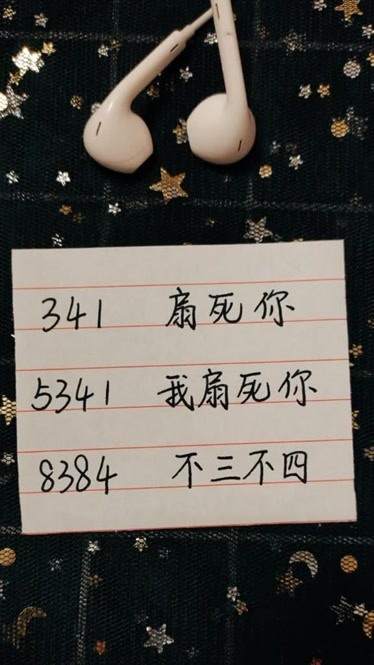 341 扇死你
5341 我扇死你
8384 不三不四